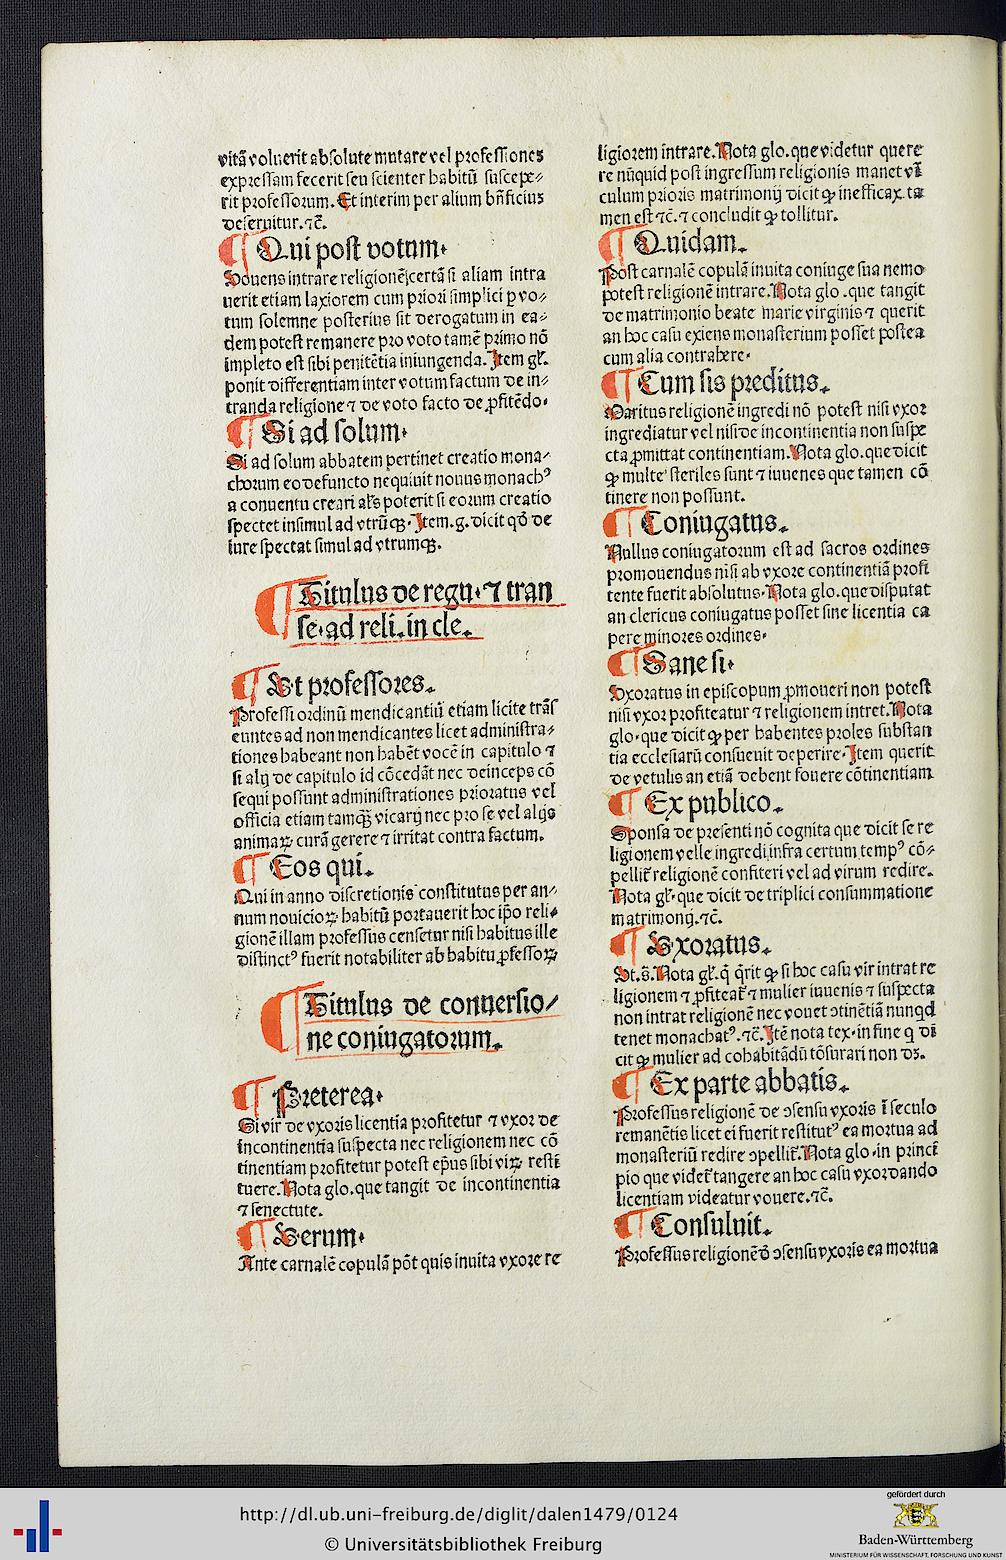 vitā voluerit absolute mutare vel professiones
expressam fecerit seu scienter habitū suscepe⸗
rit professorum. Et interim per alium bn̄ficius
deseruitur.⁊c̄.
¶ Qui post votum.
Vovens intrare religionē certā si aliam intra
uerit etiam laxiorem cum priori simplici p vo⸗
tum solemne posterius sit derogatum in ea⸗
dem potest remanere pro voto tamē primo nō
impleto est sibi penitētia iniungenda. Item gl̄.
ponit differentiam inter votum factum de in⸗
tranda religione ⁊ de voto facto de ꝓfitēdo.
¶ Si ad solum.
Si ad solum abbatem pertinet creatio mona⸗
chorum eo defuncto nequiuit nouus monachꝰ
a conuentu creari al̄s poterit si eorum creatio
spectet insimul ad vtrūqꝫ. Item.g. dicit qđ de
iure spectat simul ad vtrumqꝫ.
¶ Titulus de regu. ⁊ tran
se. ad reli. in cle.
¶ Ut professores.
Professi ordinū mendicantiū etiam licite trās
euntes ad non mendicantes licet administra⸗
tiones habeant non habēt vocē in capitulo ⁊
si alij de capitulo id cōcedāt nec deinceps cō
sequi possunt administrationes prioratus vel
officia etiam tamqꝫ vicarij nec pro se vel alijs
animaꝝ curā gerere ⁊ irritat contra factum.
¶ Eos qui.
Qui in anno discretionis constitutus per an⸗
num nouicioꝝ habitū portauerit hoc ip̄o reli⸗
gionē illam professus censetur nisi habitus ille
distinctꝰ fuerit notabiliter ab habitu ꝓfessoꝝ
¶ Titulus de conuersio⸗
ne coniugatorum.
¶ Preterea.
Si vir de vxoris licentia profitetur ⁊ vxor de
incontinentia suspecta nec religionem nec cō
tinentiam profitetur potest ep̄us sibi viꝝ restī
tuere. Nota glo. que tangit de incontinentia
⁊ senectute.
¶ Verum.
Ante carnalē copulā pōt quis inuita vxore re
ligiorem intrare. Nota glo. que videtur quere
re nūquid post ingressum religionis manet vī
culum prioris matrimonij dicit ꝙ inefficax. ta
men est ⁊c̄. ⁊ concludit ꝙ tollitur.
¶ Quidam.
Post carnalē copulā inuita coniuge sua nemo
potest religionē intrare. Nota glo. que tangit
de matrimonio beate marie virginis ⁊ querit
an hoc casu exiens monasterium posset postea
cum alia contrahere.
¶ Cum sis preditus.
Maritus religionē ingredi nō potest nisi vxor
ingrediatur vel nisi de incontinentia non suspe
cta ꝓmittat continentiam. Nota glo. que dicit
ꝙ multe steriles sunt ⁊ iuuenes que tamen cō
tinere non possunt.
¶ Coniugatus.
Nullus coniugatorum est ad sacros ordines
promouendus nisi ab vxore continentiā profi
tente fuerit absolutus. Nota glo. que disputat
an clericus coniugatus posset sine licentia ca
pere minores ordines.
¶ Sane si.
Vxoratus in episcopum ꝓmoueri non potest
nisi vxor profiteatur ⁊ religionem intret. Nota
glo. que dicit ꝙ per habentes proles substan
tia ecclesiarū consueuit deperire. Item querit
de vetulis an etiā debent fouere cōtinentiam
¶ Ex publico.
Sponsa de presenti nō cognita que dicit se re
ligionem velle ingredi infra certum tempꝰ cō⸗
pellit̄ religionē confiteri vel ad virum redire.
Nota gl̄. que dicit de triplici consummatione
matrimonij. ⁊c̄.
¶ Vxoratus.
Vt. s̄. Nota gl̄. q̄ q̄rit ꝙ si hoc casu vir intrat re
ligionem ⁊ ꝓfiteat̄ ⁊ mulier iuuenis ⁊ suspecta
non intrat religionē nec vouet ↄtinētiā nunqd
tenet monachatꝰ. ⁊c̄. Itē nota tex. in fine q di
cit ꝙ mulier ad cohabitādū tōsurari non dꝫ.
¶ Ex parte abbatis.
Professus religionē de ↄsensu vxoris ī seculo
remanētis licet ei fuerit restitutꝰ ea mortua ad
monasteriū redire ↄpellit̄. Nota glo. in princī
pio que videt̄ tangere an hoc casu vxor dando
licentiam videatur vouere. ⁊c̄.
¶ Consuluit.
Professus religionē đ ↄsensu vxoris ea mortua
http://dl.ub.uni-freiburg.de/diglit/dalen1479/0124
© Universitätsbibliothek Freiburg
gefördert durch
Baden-Württemberg
MINISTERIUM FÜR WISSENSCHAFT, FORSCHUNG UND KUNST